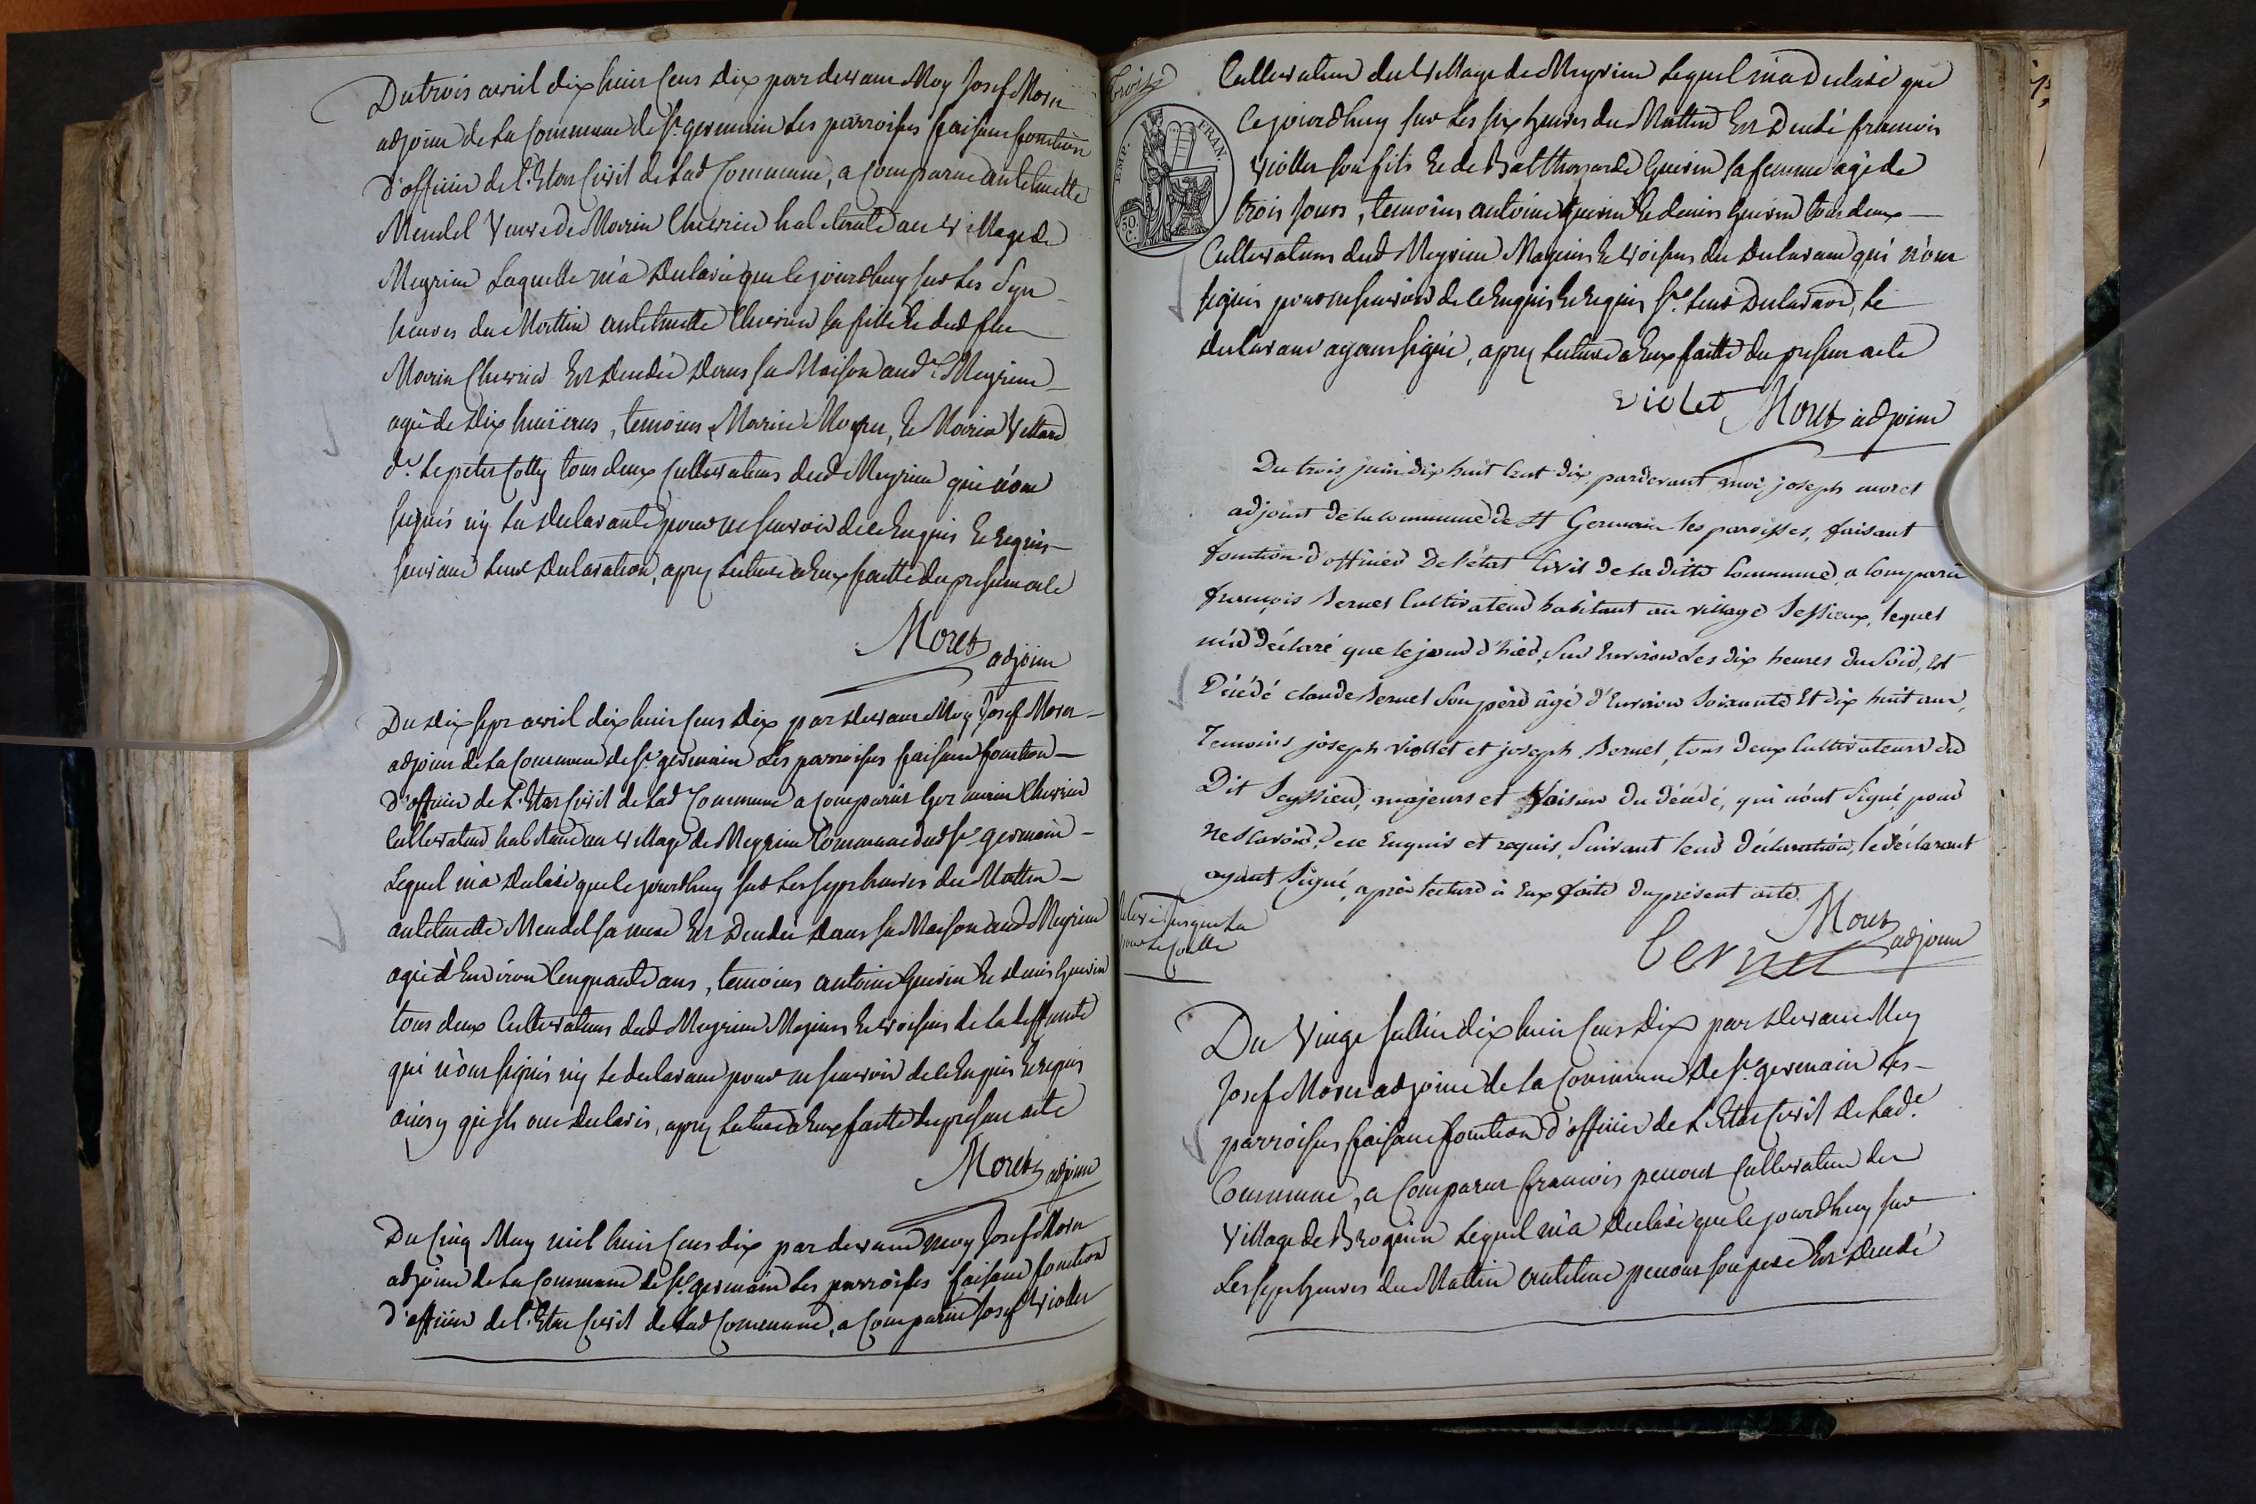 Du trois avril dix huit cens dix par devant Moy Josef Moret
adjoint de la Commune de St. germain les parroisses faisant fonction
d'officier de l'Etat Civil de lad Commune, a Comparue anthelmette
Mendel Veuve de Morin Chevrier habitante au Village de
Meyrieu Laquelle m'a Declaré que le jourdhuy sur les Sept
heures du Mattin anthelmette Chevrier sa fille Et dud feu
Morin Chevrier Est Decedée Dans sa Maison aud. Meyrieu
agée de Dix huit ans, temoins Morin, Et Morin Villard
dt. Le petit Cotty tous deux Cultivateurs dud Meyrieu qui n'ont
signés ny La Declarante pour ne scavoir de ce Enquis Et Requis
suivant leur Declaration, apres lecture a Eux faitte du present acte
Moret adjoint
Du Dix sept avril dix huit cens Dix par Devant Moy Josef Moret
adjoint de la Commune de St. germain Les parroisses faisant fonction
d'officier de L'Etat Civil de lad Commune a Comparut Germain Chevrier
Cultivateur habitant au Village de Meyrieu Commune dud St. germain
Lequel m'a Declaré que le jourdhuy sur Les sept heures du Mattin
anthelmette Mendel sa mere Est Decedée dans sa Maison aud Meyrieu
agée d'Environ Cinquante ans, temoins antoine Guerin Et Denis Guerin
tous deux Cultivateurs dud Meyrieu Majeurs Et voisins de la deffunte
qui n'ont signés ny le declarant pour ne scavoir de ce Enquis Et requis
ainsy qu'ils ont Declarés, apres lecture a Eux faitte du present acte
Moret adjoint
Du Cinq May mil huit cens dix par devant moy Josef Moret
adjoint de la Commune de St. germain les parroisses faisant fonction
d'officier de l'Etat Civil de lad Commune, a Comparut Josef Viollet
Troise
EMP. FRAN.
50 C.
Cultivateur du Village de Meyrieu Lequel m'a Declaré que
Ce jourdhuy sur Les six heures du Mattin Est Decedé francois
Viollet son fils Et de Balthazarde Guerin sa femme agé de
trois Jours, temoins antoine Guerin Et denis Guerin tous deux
Cultivateurs dud Meyrieu Majeurs Et voisins du Declarant qui n'ont
signés pour ne scavoir de ce Enquis Et Requis St. leur Declaration, le
declarant ayant signé, apres lecture a Eux faitte du present acte
violet Moret adjoint
Du trois juin dix huit Cent dix, pardevant moi joseph moret
adjoint de la Commune de St Germain les paroisses, faisant
fonction d'officier De l'état Civil de la ditte Commune, a Comparu
françois Bernet Cultivateur habitant au village Sessieux, lequel
m'a Déclaré que le jour d'hier, Sur Environ Les dix heures du Soir, Est
Décédé claude Bernet Son père âgé d'Environ Soixante Et dix huit ans,
Temoins joseph viollet et joseph Bernet, tous deux Cultivateurs du
Dit Seyssieu, majeurs et Voisins du décédé, qui n'ont Signé pour
ne Scavoir, de ce Enquis et requis, Suivant leur déclaration, le déclarant
ayant Signé, après lecture à Eux faite du présent acte.
Moret adjoint
Bernet
Jusque La
Du Vingt Juillet dix huit cens Dix par Devant Moy
Josef Moret adjoint de la Commune De St. germain les
parroisses faisant fonction d'officier de L'Etat Civil De lad.e
Commune, a Comparut francois penout Cultivateur du
Village de Brognin Lequel m'a Declaré que le jourdhuy sur
Les sept heures du Mattin penout son pere Est Decedé